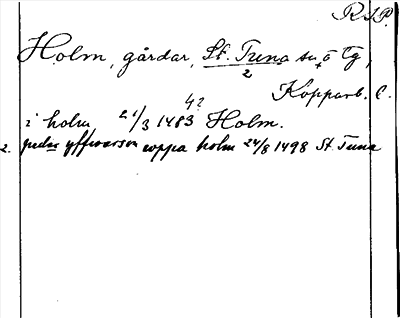 R.S.P.
Holm, gårdar, St. Tuna sn, o Tg,
2
Kopparb. l.
4?
i holm 21/3 1483 Holm.
2. pedar yffwarson uppa holm 24/8 1498 St Tuna